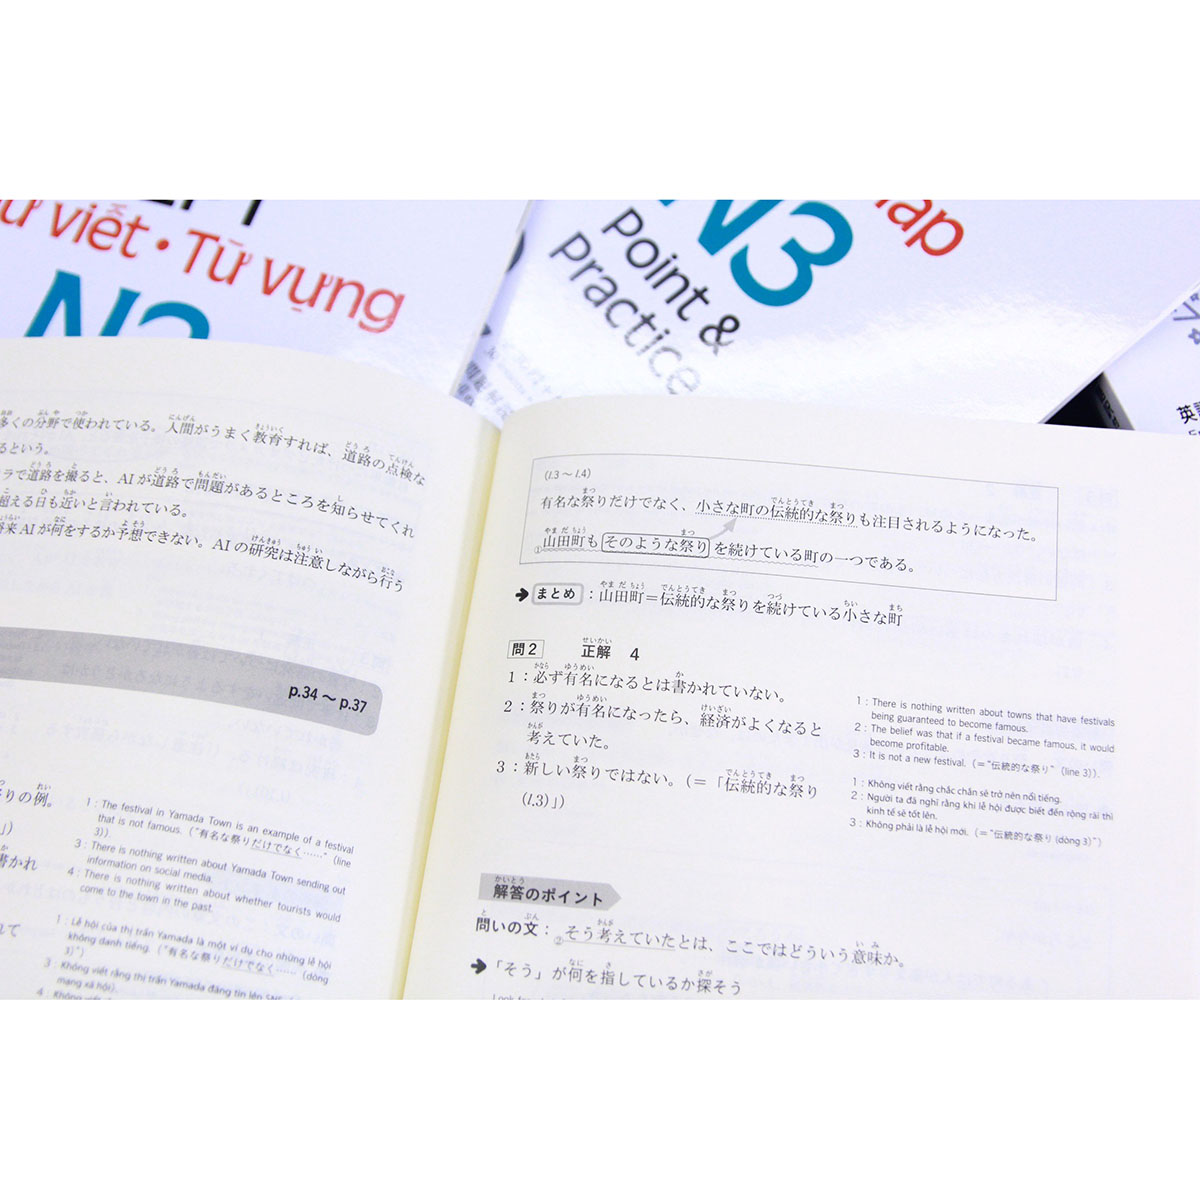 ư viết・Từ vựng
N3
Point &
Practice
英語
多くの分野で使われている。人間がうまく教育すれば、道路の点検な
るという。
ラで道路を撮ると、AIが道路で問題があるところを知らせてくれ
超える日も近いと言われている。
将来AIが何をするか予想できない。AIの研究は注意しながら行う
p.34〜p.37
祭りの例。
書かれ
1：The festival in Yamada Town is an example of a festival
that is not famous. (“有名な祭りだけでなく……” (line
3)).
3：There is nothing written about Yamada Town sending out
information on social media.
4：There is nothing written about whether tourists would
come to the town in the past.
1：Lễ hội của thị trấn Yamada là một ví dụ cho những lễ hội
không danh tiếng. (“有名な祭りだけでなく……(dòng
3)”)
3：Không viết rằng thị trấn Yamada đăng tin lên
mạng xã hội).
(l.3〜l.4)
有名な祭りだけでなく、小さな町の伝統的な祭りも注目されるようになった。
①山田町もそのような祭りを続けている町の一つである。
➔まとめ：山田町＝伝統的な祭りを続けている小さな町
問2 正解 4
1：必ず有名になるとは書かれていない。
2：祭りが有名になったら、経済がよくなると
考えていた。
3：新しい祭りではない。(＝「伝統的な祭り
(l.3)」)
1：There is nothing written about towns that have festivals
being guaranteed to become famous.
2：The belief was that if a festival became famous, it would
become profitable.
3：It is not a new festival. (＝“伝統的な祭り” (line 3)).
1：Không viết rằng chắc chắn sẽ trở nên nổi tiếng.
2：Người ta đã nghĩ rằng khi lễ hội được biết đến rộng rãi thì
kinh tế sẽ tốt lên.
3：Không phải là lễ hội mới. (＝“伝統的な祭り (dòng 3)”)
解答のポイント
問いの文：②そう考えていたとは、ここではどういう意味か。
➔「そう」が何を指しているか探そう